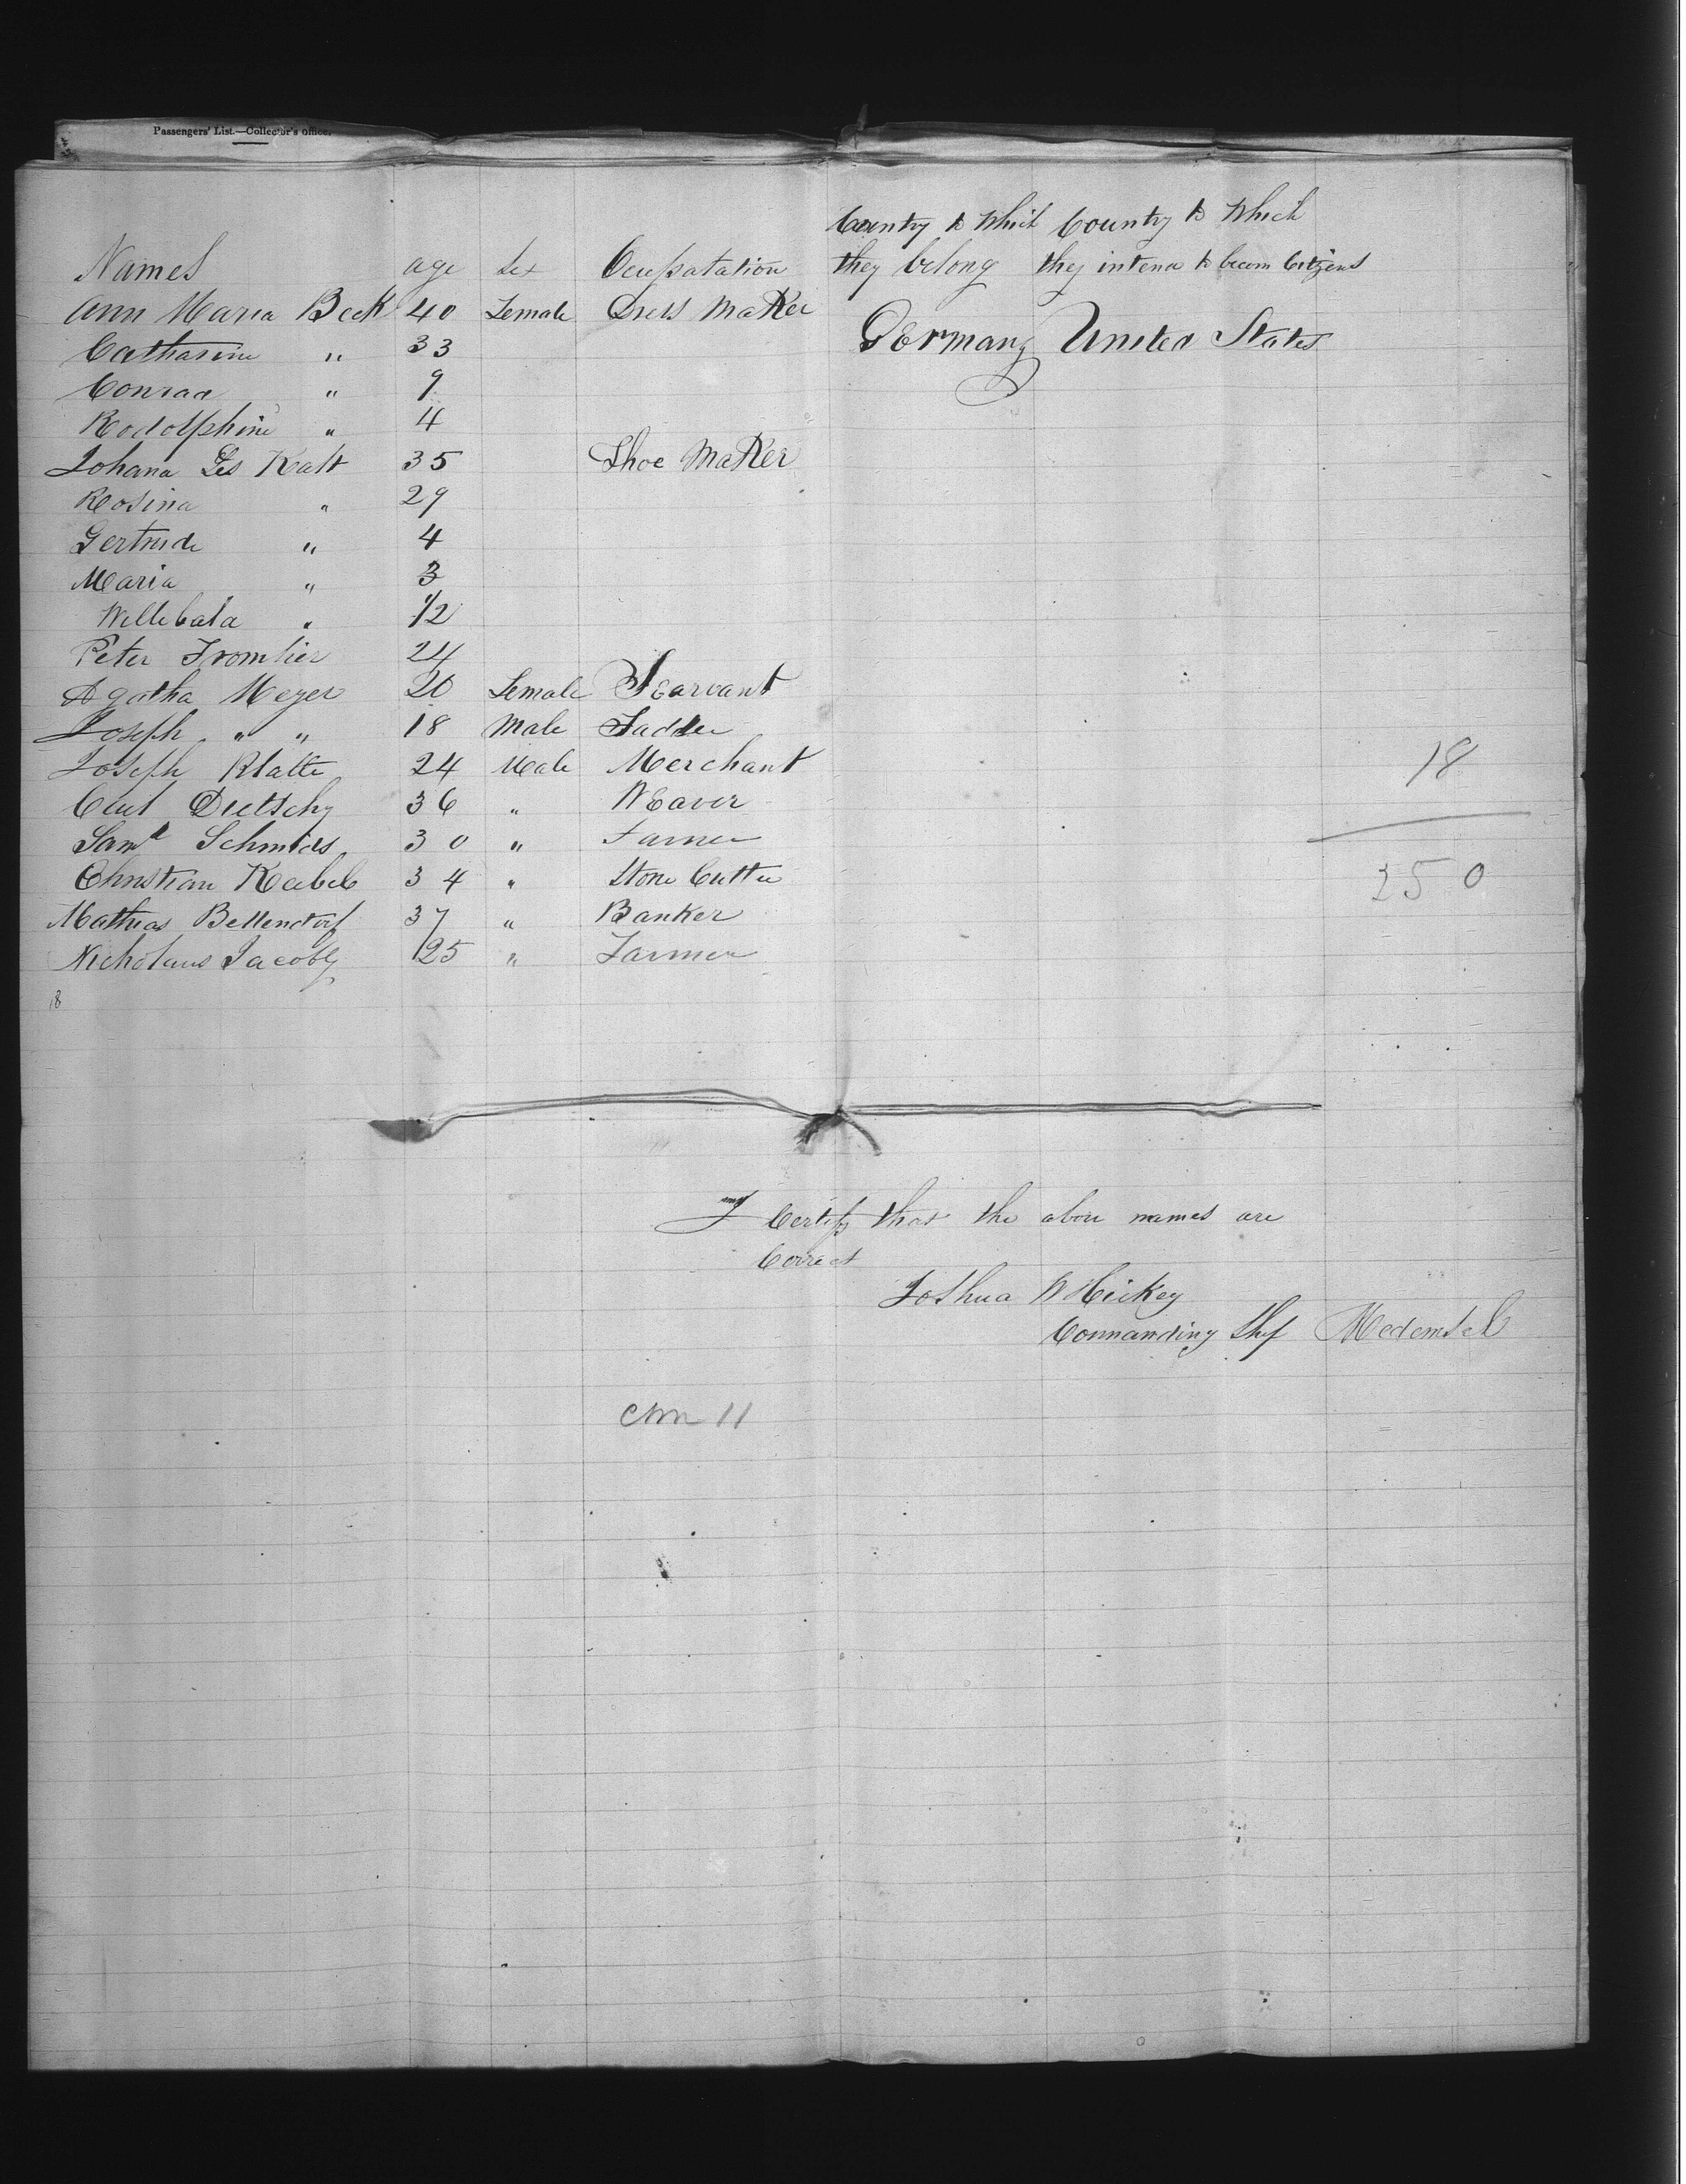 Passengers' List.—Collector's office.
Country to Which Country to Which
Names age Sex Ocupatation they belong they intend to becom Citizens
Ann Maria Beck 40 Female Dress Maker
Catharine " 33 Germany United States
Conrad " 9
Rodolphine " 4
Johana Katt 35 Shoe Maker
Rosina " 29
Gertrude " 4
Maria " 3
Willebala " 1/2
Peter Fromlier 24
Agatha Meyer 20 Female Searvant
Joseph " " 18 Male Sadder
Joseph Klatte 24 Male Merchant
Dietschy 36 " Weaver
Saml Schmids 30 " Farmer
Christian Kabele 34 " Stone Cutter
Mathias Bellendorf 37 " Banker
Nicholaus Jacoby 25 " Farmer
18
18
250
I Certify that the above names are
Correct
Joshua W Hickey
Commanding Shp
11